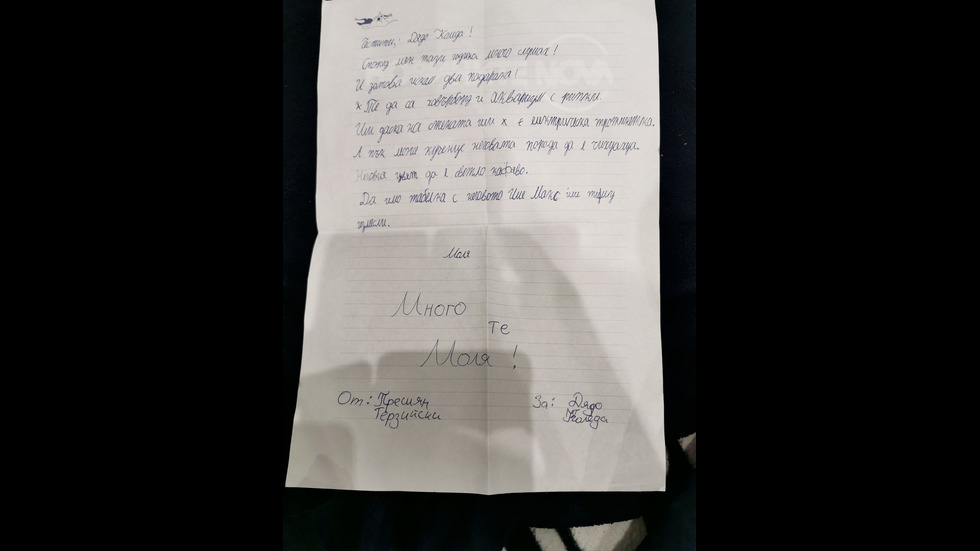 Дядо Коледа!
Според мен тази година много слушах!
И затова искам два подаръка!
х Те да са ховърборд и Аквариум с рибки.
Или дъска на стената или х е електрическа тротинетка.
А пък мона кученце неговата порода да е чихуахуа.
Неговия цвят да е светло кафяво.
Да има табелка с неговото Име Макс или
Моля
Много
те
Моля!
От: Пресиян
Терзийски
За: Дядо
Коледа
NOVA